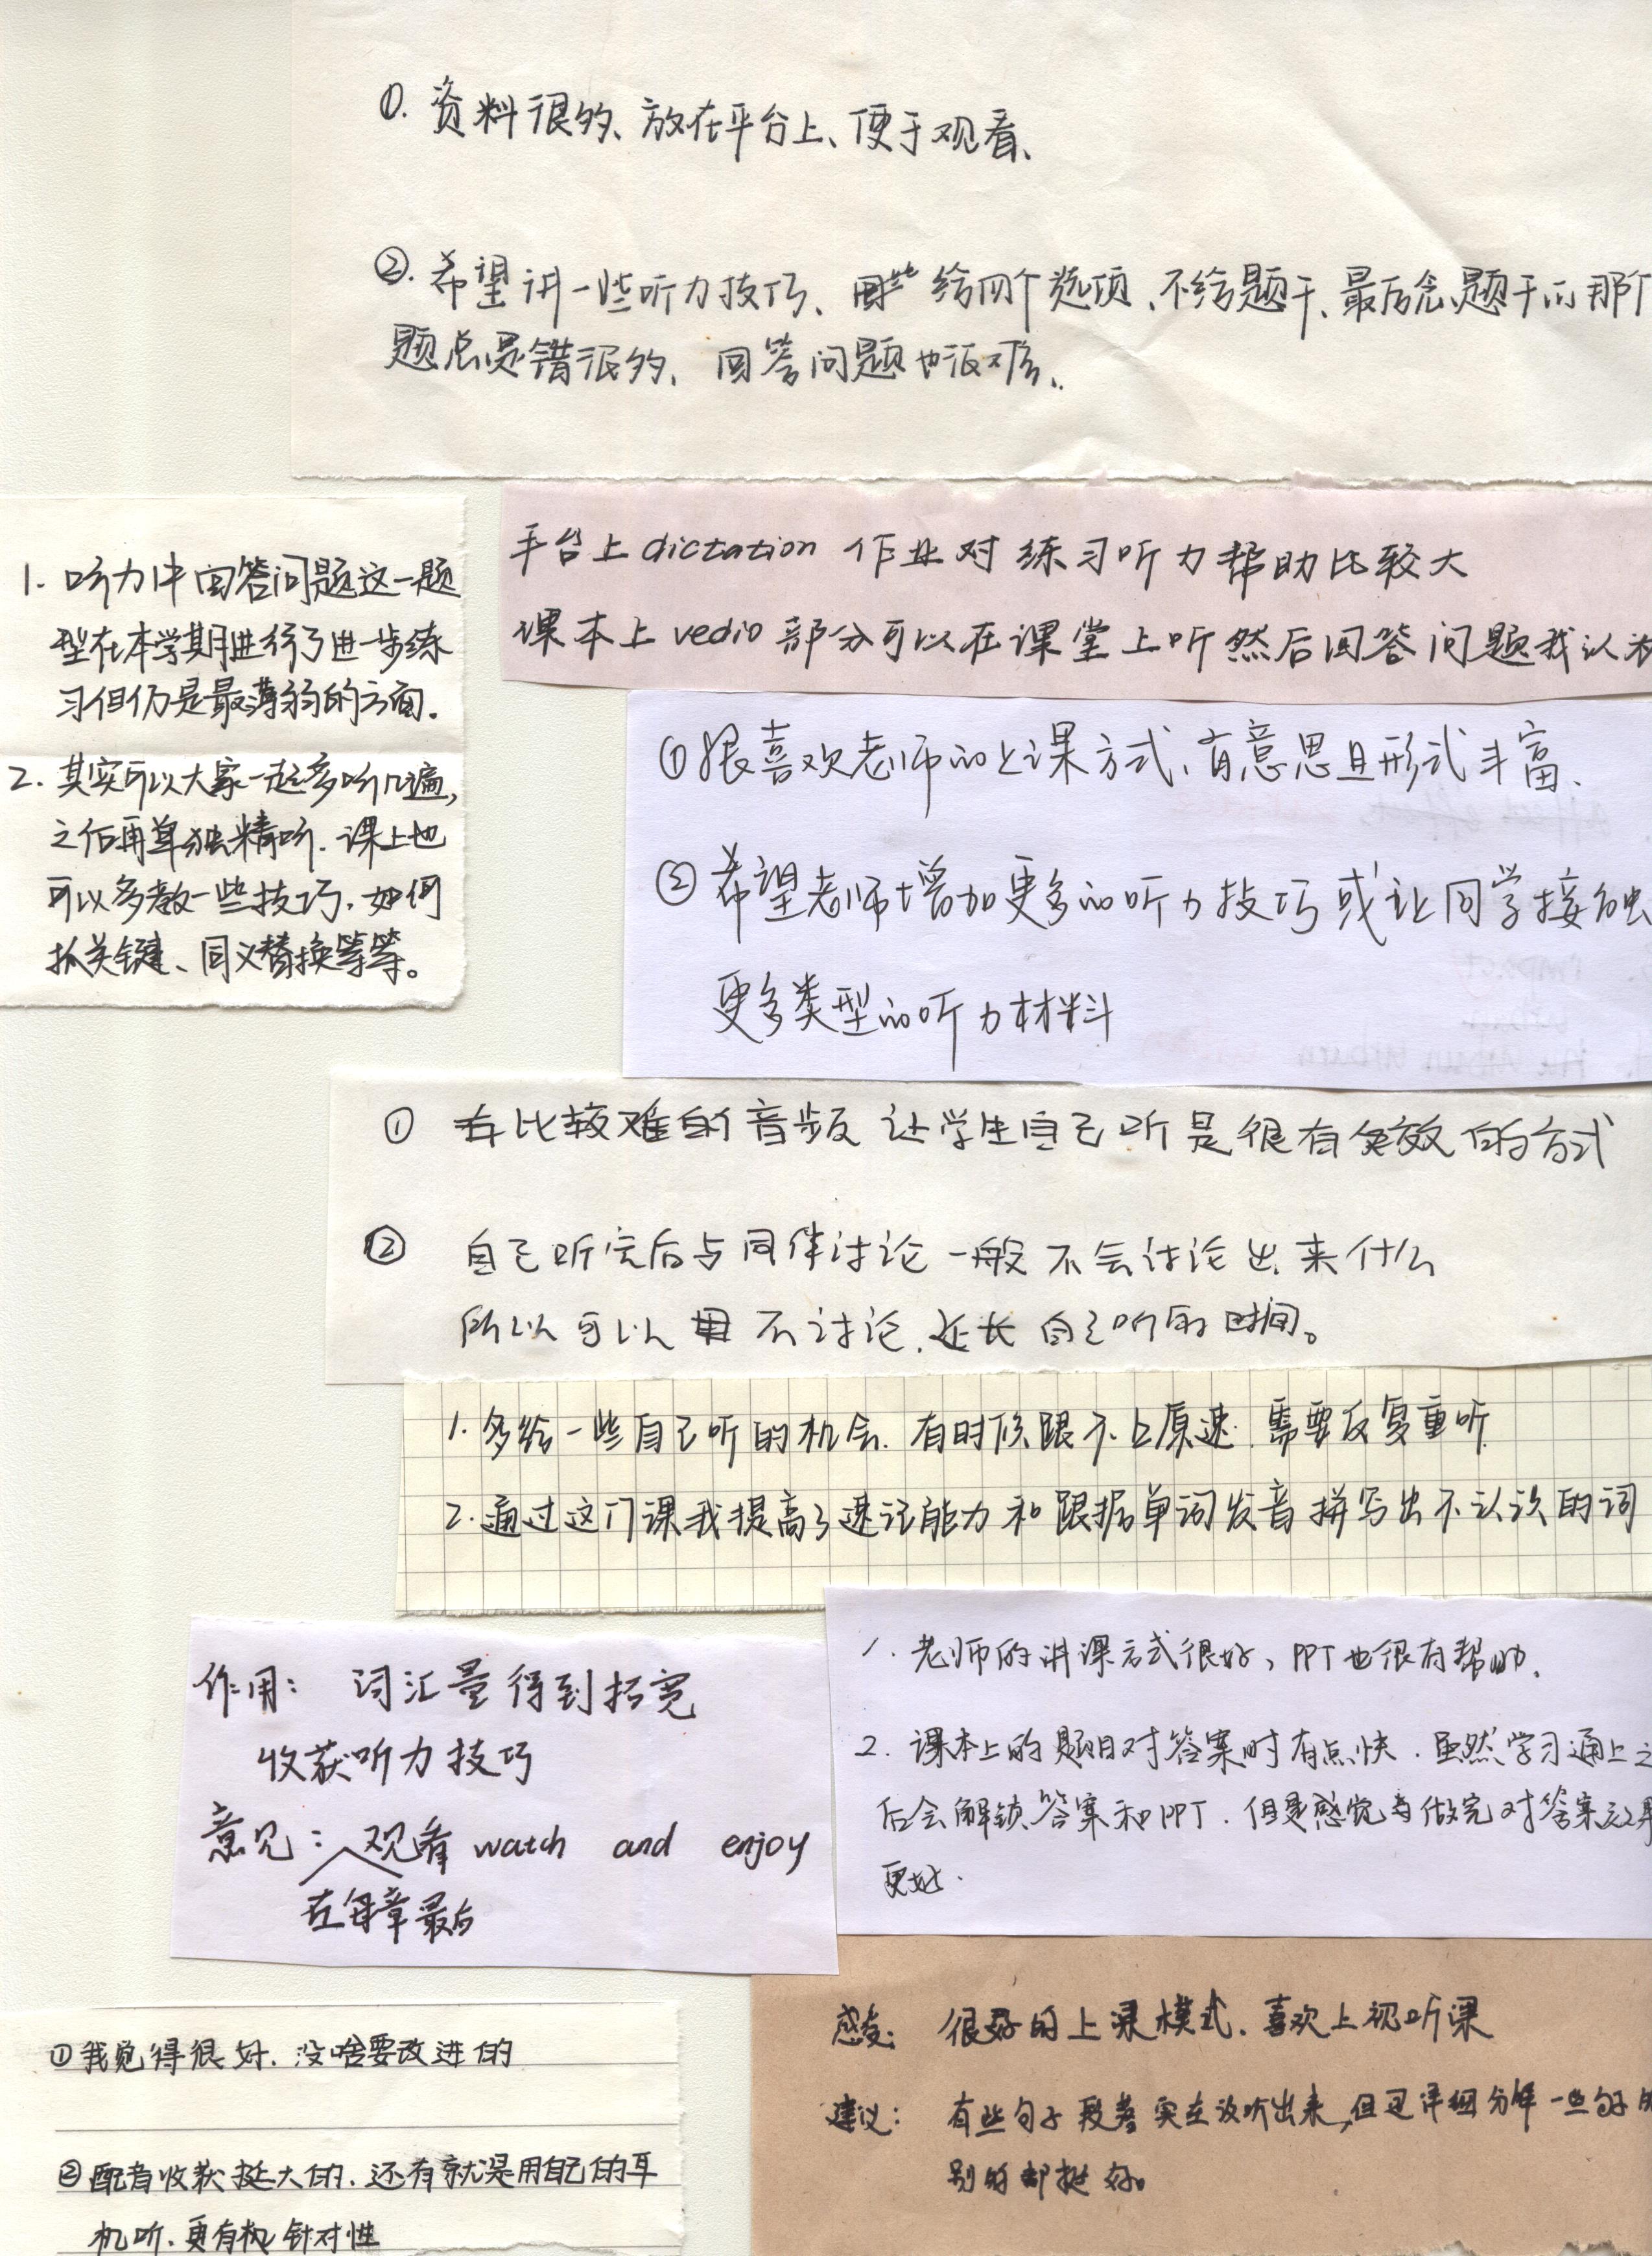 ①. 资料很多、放在平台上、便于观看、
②. 希望讲一些听力技巧、 给四个选项、不给题干、最后念题干的那个
题总是错很多、回答问题也很难、
1. 听力中回答问题这一题
型在本学期进行了进一步练
习但仍是最薄弱的方面。
2. 其实可以大家一起多听几遍,
之后再单独精听. 课上也
可以多教一些技巧. 如何
抓关键、同义替换等等。
平台上 dictation 作业对练习听力帮助比较大
课本上 vedio 部分可以在课堂上听然后回答问题我认为
①很喜欢老师的上课方式、有意思且形式丰富.
② 希望老师增加更多的听力技巧或让同学接触
更多类型的听力材料
① 在比较难的音频 让学生自己听是很有效的方式
② 自己听完后与同伴讨论一般不会讨论出来什么
所以可以 不讨论, 延长自己听的时间。
1. 多给一些自己听的机会. 有时候跟不上原速. 需要反复重听
2. 通过这门课我提高了速记能力和跟据单词发音拼写出不认识的词
作用: 词汇量得到拓宽
收获听力技巧
意见: 观看 watch and enjoy
在每章最后
1. 老师的讲课方式很好, PPT也很有帮助.
2. 课本上的题目对答案时有点快. 虽然学习通上之
后会解锁答案和PPT. 但是感觉 做完对答案效果
更好.
感受: 很好的上课模式. 喜欢上视听课
建议: 有些句子 段落 实在没听出来, 详细分解一些句子
别的都挺好。
①我觉得很好. 没啥要改进的
②配音收获挺大的. 还有就是用自己的耳
机听. 更有 针对性